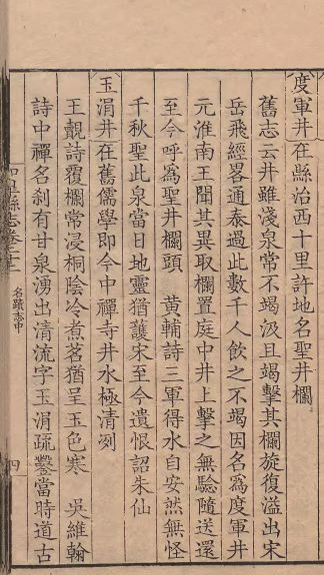 度軍井在縣治西十里許地名聖井欄
舊志云井雖淺泉常不竭汲且竭擊其欄旋復溢出宋
岳飛經畧通泰過此數千人飲之不竭因名爲度軍井
元淮南王聞其異取欄置庭中井上擊之無驗隨送還
至今呼爲聖井欄頭 黃輔詩三軍得水自安然無怪
千秋聖此泉當日地靈猶護宋至今遺恨詔朱仙
玉涓井在舊儒學即今中禪寺井水極清冽
王覿詩覆欄常浸桐陰冷煮茗猶呈玉色寒 吳維翰
詩中禪名刹有甘泉湧出清流字玉涓疏鑿當時道古
縣志卷之十三
名蹟志中
四